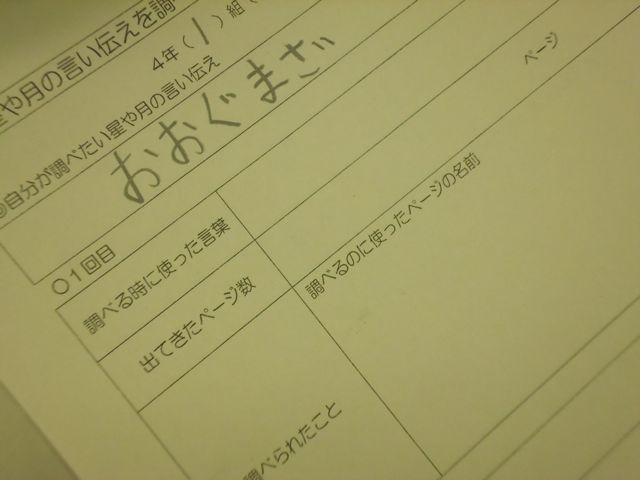 星や月の言い伝えを調
4年（1）組（
◎自分が調べたい星や月の言い伝え
おおぐまざ
○1回目
調べる時に使った言葉
出てきたページ数
ページ
調べるのに使ったページの名前
調べられたこと